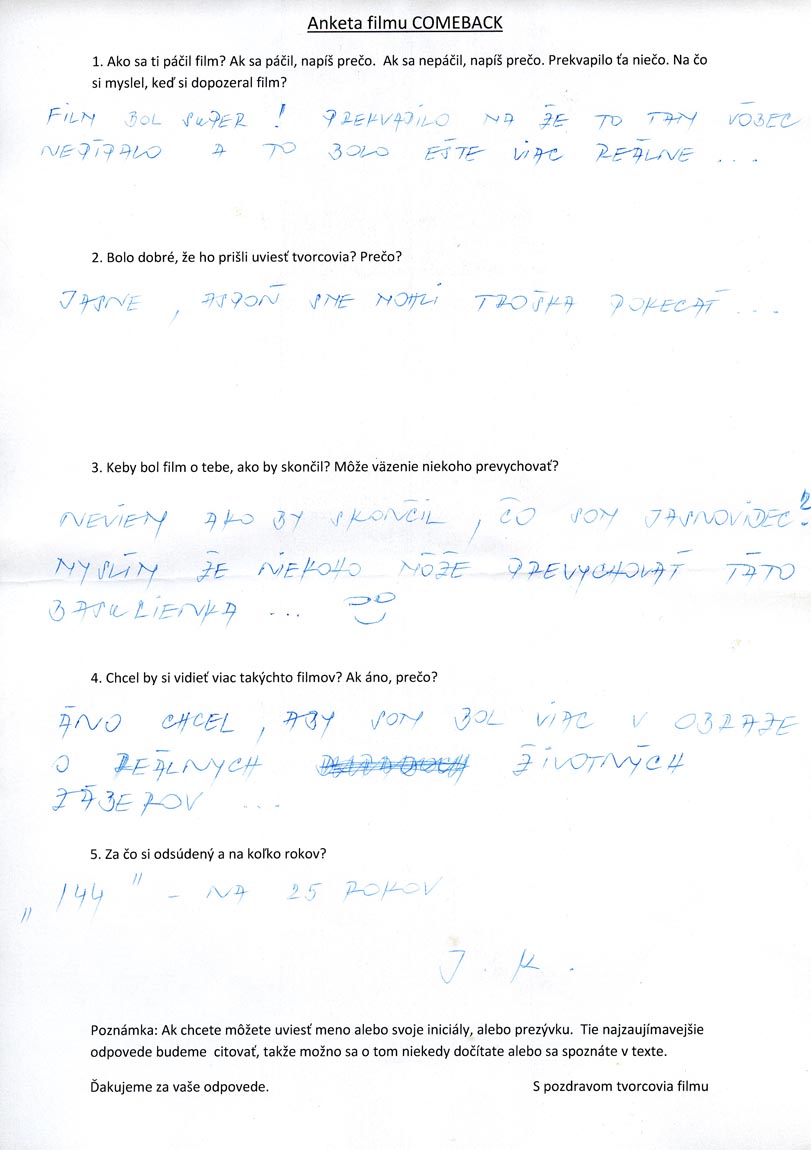 Anketa filmu COMEBACK
1. Ako sa ti páčil film? Ak sa páčil, napíš prečo. Ak sa nepáčil, napíš prečo. Prekvapilo ťa niečo. Na čo
si myslel, keď si dopozeral film?
FILM BOL SUPER ! PREKVAPILO NA ŽE TO TAM VÔBEC
NEPÍPALO A TO BOLO EŠTE VIAC REÁLNE ...
2. Bolo dobré, že ho prišli uviesť tvorcovia? Prečo?
JASNE , ASPOŇ SME MOHLI TROŠKA POKECAŤ ...
3. Keby bol film o tebe, ako by skončil? Môže väzenie niekoho prevychovať?
NEVIEM AKO BY SKONČIL , ČO SOM JASNOVIDEC ?
MYSLÍM ŽE NIEKOHO MÔŽE PREVYCHOVAŤ TÁTO
BASULIENKA ...
4. Chcel by si vidieť viac takýchto filmov? Ak áno, prečo?
ÁNO CHCEL , ABY SOM BOL VIAC V OBRAZE
O REÁLNYCH ŽIVOTNÝCH
ZÁBEROV ...
5. Za čo si odsúdený a na koľko rokov?
„ 144 " - NA 25 ROKOV
J . K .
Poznámka: Ak chcete môžete uviesť meno alebo svoje iniciály, alebo prezývku. Tie najzaujímavejšie
odpovede budeme citovať, takže možno sa o tom niekedy dočítate alebo sa spoznáte v texte.
Ďakujeme za vaše odpovede. S pozdravom tvorcovia filmu